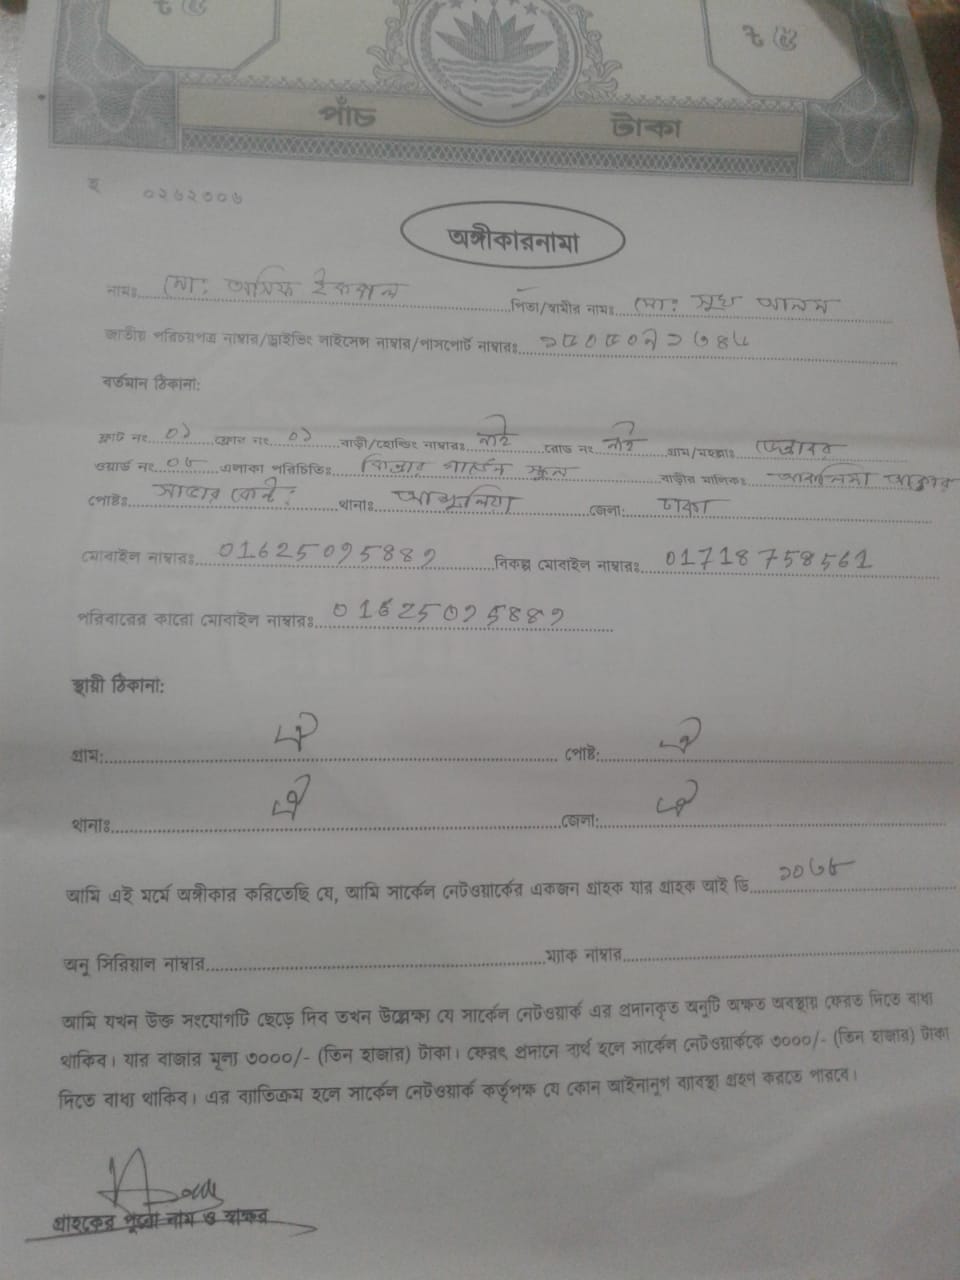 ৳ ৫
৳ ৫
পাঁচ টাকা
হ ০২৬২৩০৬
অঙ্গীকারনামা
নামঃ মো: আসিফ ইকবাল পিতা/স্বামীর নামঃ মো: আলম
জাতীয় পরিচয়পত্র নাম্বার/ড্রাইভিং লাইসেন্স নাম্বার/পাসপোর্ট নাম্বারঃ
বর্তমান ঠিকানা:
ফ্লাট নং ০১ ফ্লোর নং ০১ বাড়ী/হোল্ডিং নাম্বারঃ নাই রোড নং নাই গ্রাম/মহল্লাঃ
ওয়ার্ড নং ০৮ এলাকা পরিচিতিঃ স্কুল বাড়ীর মালিকঃ আক্তার
পোষ্টঃ সাভার ক্যান্ট: থানাঃ আশুলিয়া জেলা: ঢাকা
মোবাইল নাম্বারঃ 01625095889 বিকল্প মোবাইল নাম্বারঃ 01718758561
পরিবারের কারো মোবাইল নাম্বারঃ 01625095889
স্থায়ী ঠিকানা:
গ্রাম: ঐ পোষ্ট: ঐ
থানাঃ ঐ জেলা: ঐ
আমি এই মর্মে অঙ্গীকার করিতেছি যে, আমি সার্কেল নেটওয়ার্কের একজন গ্রাহক যার গ্রাহক আই ডি ১০৬৮
অনু সিরিয়াল নাম্বার ম্যাক নাম্বার
আমি যখন উক্ত সংযোগটি ছেড়ে দিব তখন উল্লেক্ষ্য যে সার্কেল নেটওয়ার্ক এর প্রদানকৃত অনুটি অক্ষত অবস্থায় ফেরত দিতে বাধ্য
থাকিব। যার বাজার মূল্য ৩০০০/- (তিন হাজার) টাকা। ফেরৎ প্রদানে ব্যর্থ হলে সার্কেল নেটওয়ার্ককে ৩০০০/- (তিন হাজার) টাকা
দিতে বাধ্য থাকিব। এর ব্যাতিক্রম হলে সার্কেল নেটওয়ার্ক কর্তৃপক্ষ যে কোন আইনানুগ ব্যাবস্থা গ্রহণ করতে পারবে।
গ্রাহকের পুরো নাম ও স্বাক্ষর